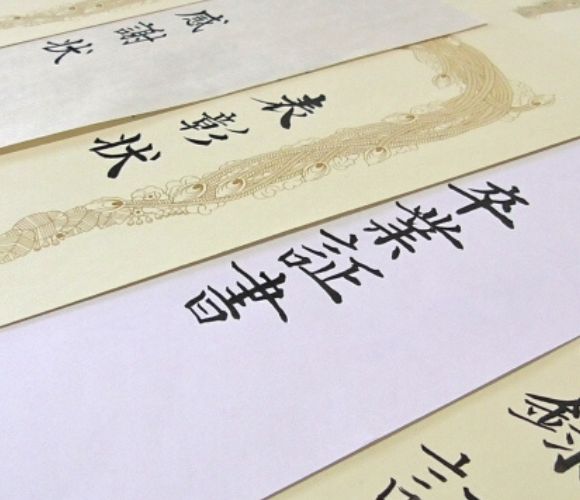 感謝状
表彰状
卒業証書